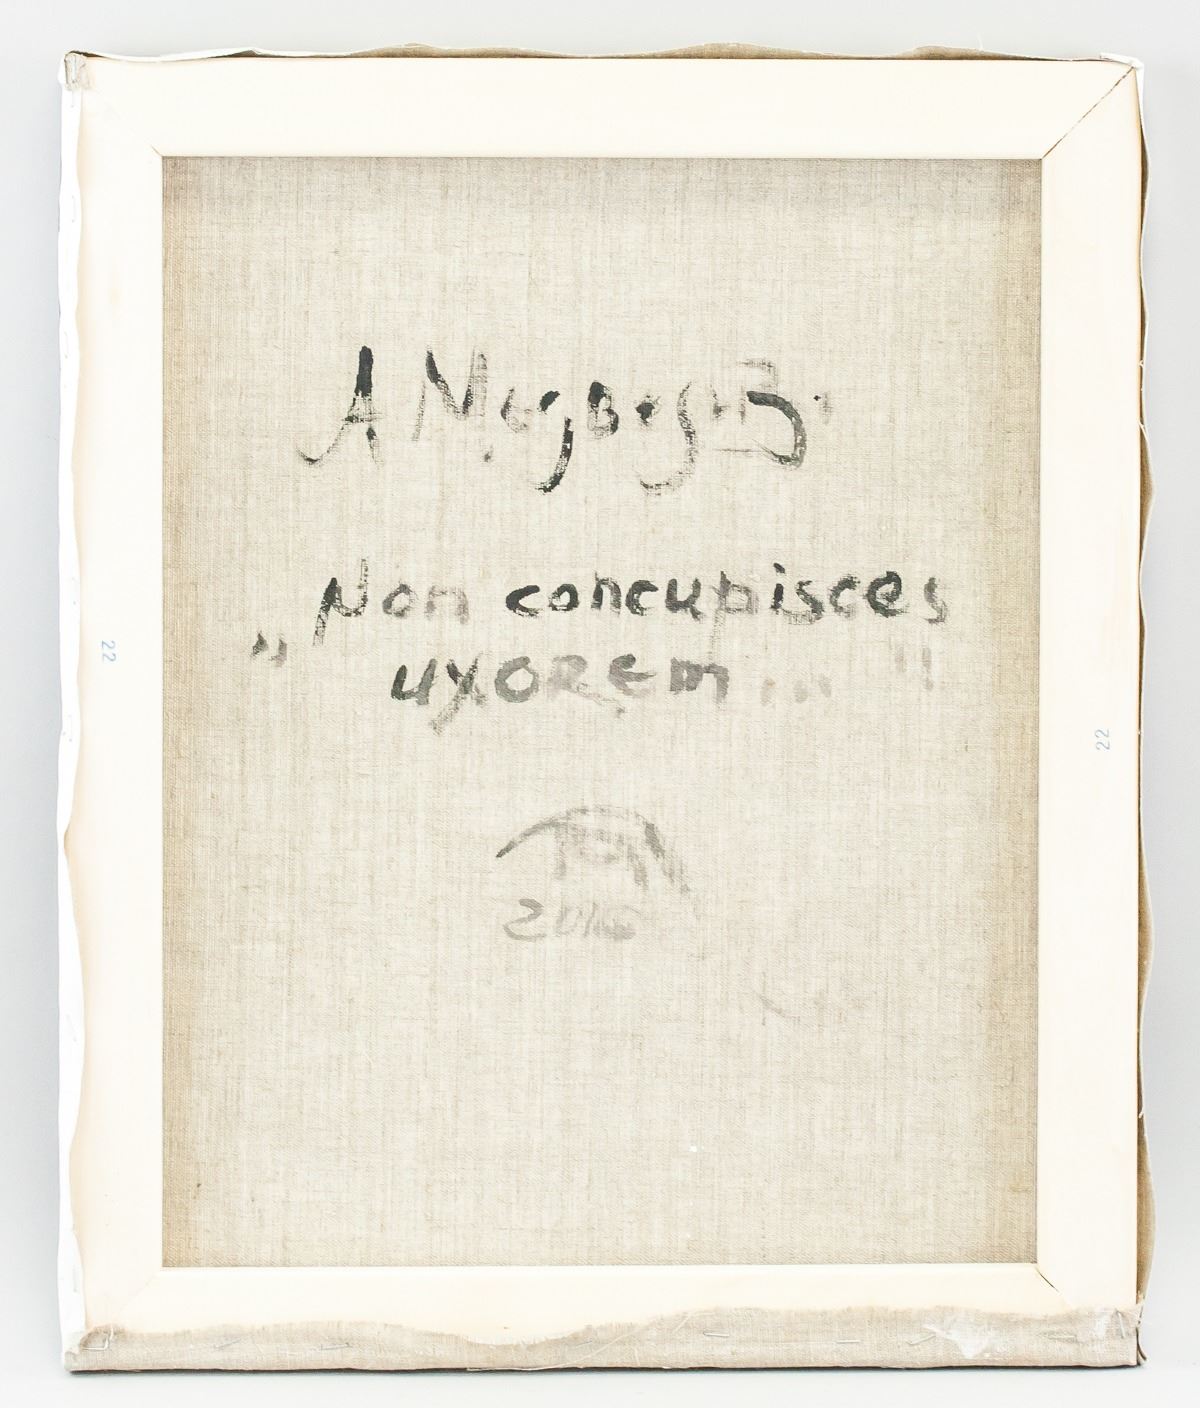 А Медведев.
„Non concupisces
uxorem ...
2016
22
22